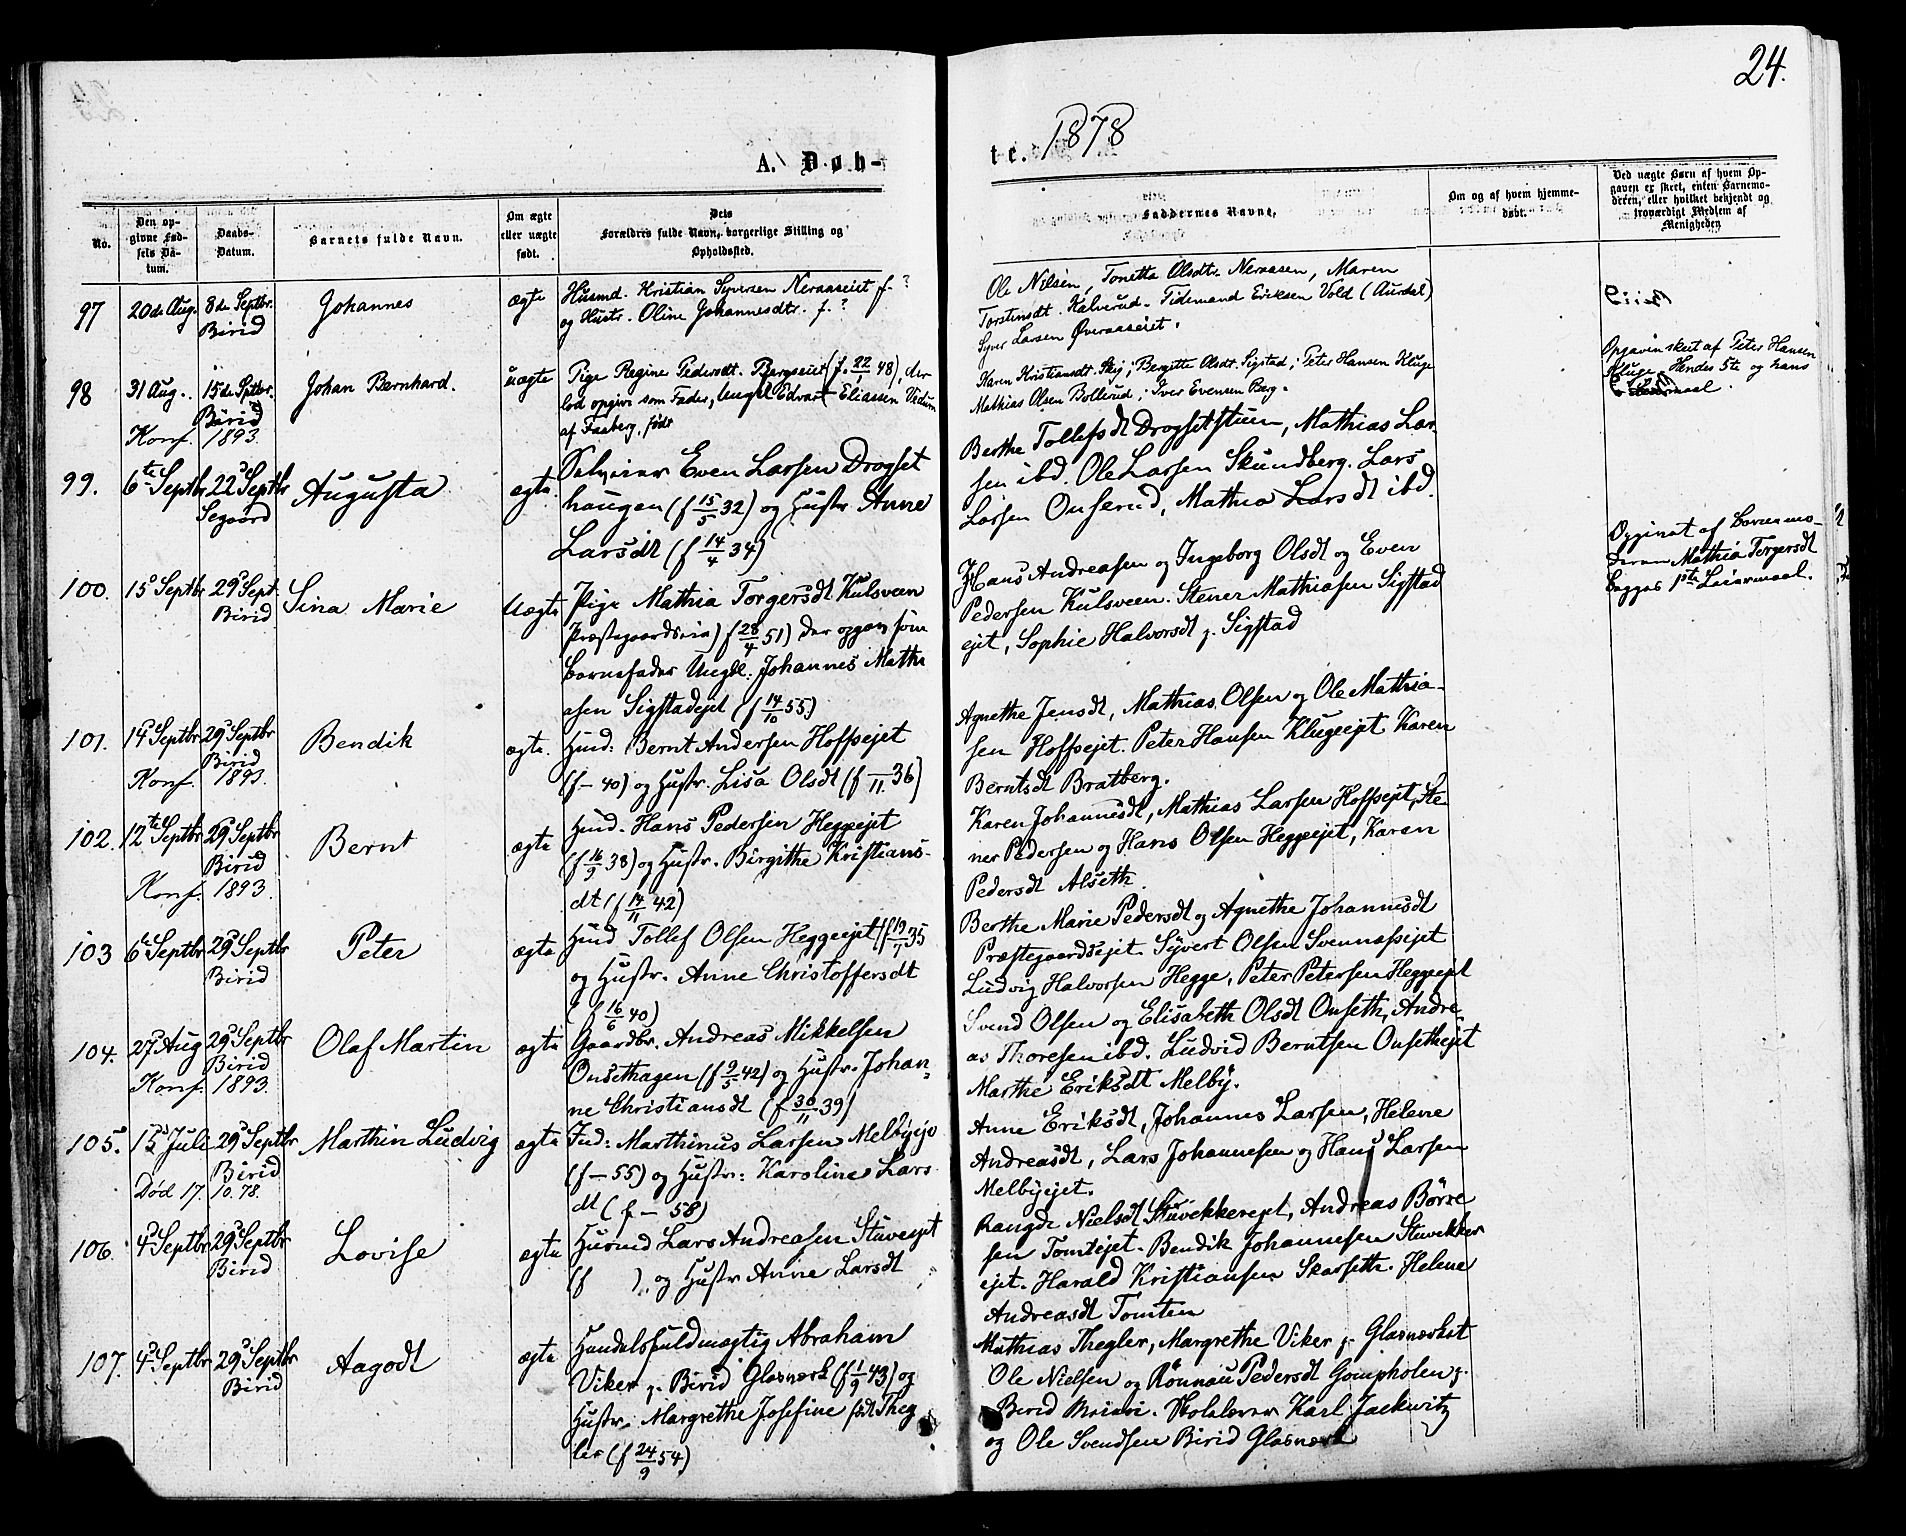 24.
A. Døb-
te. 1878
No.
Den opgivne Fødsels Datum.
Daabs-Datum.
Barnets fulde Navn.
Om ægte eller uægte født.
Dets Forældres fulde Navn, borgerlige Stilling og Opholdssted.
Faddernes Navne,
Om og af hvem hjemmedøbt.
Ved uægte Børn af hvem Opgaven er skeet, enten Barnemoderen, eller hvilket bekjendt og troværdigt Medlem af Menigheden
97 20de Aug. 8de Septbr. Birid Johannes ægte
Husmd. Kristian Syversen Neraaseiet f. ?
og Hustr. Oline Johannesdtr. f. ?
Ole Nilsen, Tonetta Olsdtr. Neraasen, Maren
Torstensdt. Kalverud. Tidemand Eriksen Vold (Aurdal)
Syver Larsen Øveraaseiet.
98 31 Aug. 15de Sptbr. Birid Johan Bernhard. uægte
Konf. 1893.
Pige Regine Pedersdt. Bergseiet (f. 22/1 48), der
lod opgive som Fader, Ungkl Edvart Eliassen Vidum
af Faaberg, født
Karen Kristiansdt. Skij; Bergitte Olsdt. Sigstad; Peter Hansen Kluge
Mathias Olsen Bollerud; Iver Evensen Berg.
Opgaven skeet af Peter Hansen
Kluge. Hendes 5te og hans
Leiermaal.
99. 6te Septbr 22 Septbr Segaard Augusta ægte.
Selveier Even Larsen Drogset
haugen (f 15/5 32) og Hustr. Anne
Larsdt (f 14/4 34)
Berthe Tollefsdt Drogsetstuen, Mathias Lar-
sen ibd. Ole Larsen Skundberg. Lars
Larsen Onserud, Mathia Larsdt ibd.
100. 15 Septbr 29 Sept. Birid Sina Marie Uægte
Pige Mathia Torgersdt Kulsveen
Præstegaardseie) f 28/4 51) der opgav som
Barnefader Ungkl. Johannes Mathi
asen Sigstadejet (f 14/10 55)
Hans Andreasen og Ingeborg Olsdt og Even
Pedersen Kulsveen. Stener Mathiasen Sigstad
ejet, Sophie Halvorsdt p. Sigstad
Opgivet af Barnemo-
deren Mathia Torgersdt
Begges 1ste Leiermaal.
101. 14 Septbr 29 Septbr Birid Bendik ægte.
Konf. 1893.
Husd: Bernt Andersen Hoffsejet
(f — 40) og Hustr. Lisa Olsdt (f —/11 36)
Agnethe Jensdt, Mathias Olsen og Ole Mathia-
sen Hoffsejet. Peter Hansen Klugeejet. Karen
Berntsdt Bratberg.
102. 12te Septbr 29 Septbr Birid Bernt ægte
Konf. 1893.
Husd. Hans Pedersen Heggeejet
(f 16/9 38) og Hustr. Birgithe Kristians-
dt (f 14/11 42)
Karen Johannesdt, Mathias Larsen Hoffsejet, Ste-
ner Pedersen og Hans Olsen Heggeejet, Karen
Pedersdt Alseth.
103 6te Septbr 29 Septbr Birid Peter ægte
Husd Tollef Olsen Heggeejet (f 19/1 35
og Hustr. Anne Christoffersdt
(f 16/6 40)
Berthe Marie Pedersdt og Agnethe Johannesdt
Præstegaardsejet. Syvert Olsen Svennæsejet
Ludvig Halvorsen Hegge, Peter Petersen Heggeejet
104. 27 Aug 29 Septbr Birid Olaf Martin ægte
Konf. 1893.
Gaardbr. Andreas Mikkelsen
Onsethagen (f 9/5 42) og Hustr. Johan-
ne Christiansdt (f 30/11 39)
Svend Olsen og Elisabeth Olsdt Onseth, Andre-
as Thoresen ibd. Ludvid Berntsen Onsethejet
Marthe Eriksdt Melby.
105. 15 Juli 29 Septbr Birid Marthin Ludvig ægte
Død 17. 10. 78.
Ind: Marthinus Larsen Melbyeje
(f — 55) og Hustr: Karoline Lars
dt (f — 58)
Anne Eriksdt, Johannes Larsen, Helene
Andreasdt, Lars Johannesen og Hans Larsen
Melbyejet.
106. 4 Septbr 29 Septbr Birid Lovise ægte
Husmd Lars Andreasen Stuveejet
(f ) og Hustr Anne Larsdt
Rangdi Nielsdt Stuvekkerejet, Andreas Børre
sen Tomtejet. Bendik Johannesen Stuvekker
ejet. Harald Kristiansen Skarseth. Helene
Andreasdt Tomten
107. 4 Septbr 29 Septbr Birid Aagodt ægte
Handelsfuldmægtig Abraham
Viker p. Birid Glasværk (f 1/9 43) og
Hustr. Margrethe Josefine født Theg
ler (f 24/9 54)
Mathias Thegler, Margrethe Viker p. Glasværket
Ole Nielsen og Rönnau Pedersdt Gompholen p.
Birid Meieri. Skolelærer Karl Jackwitz
og Ole Svendsen Birid Glasværk